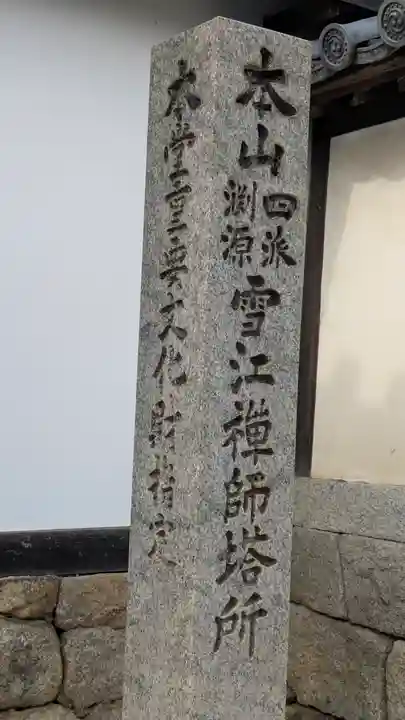 本山四派淵源雪江禅師塔所
本堂重要文化財指定